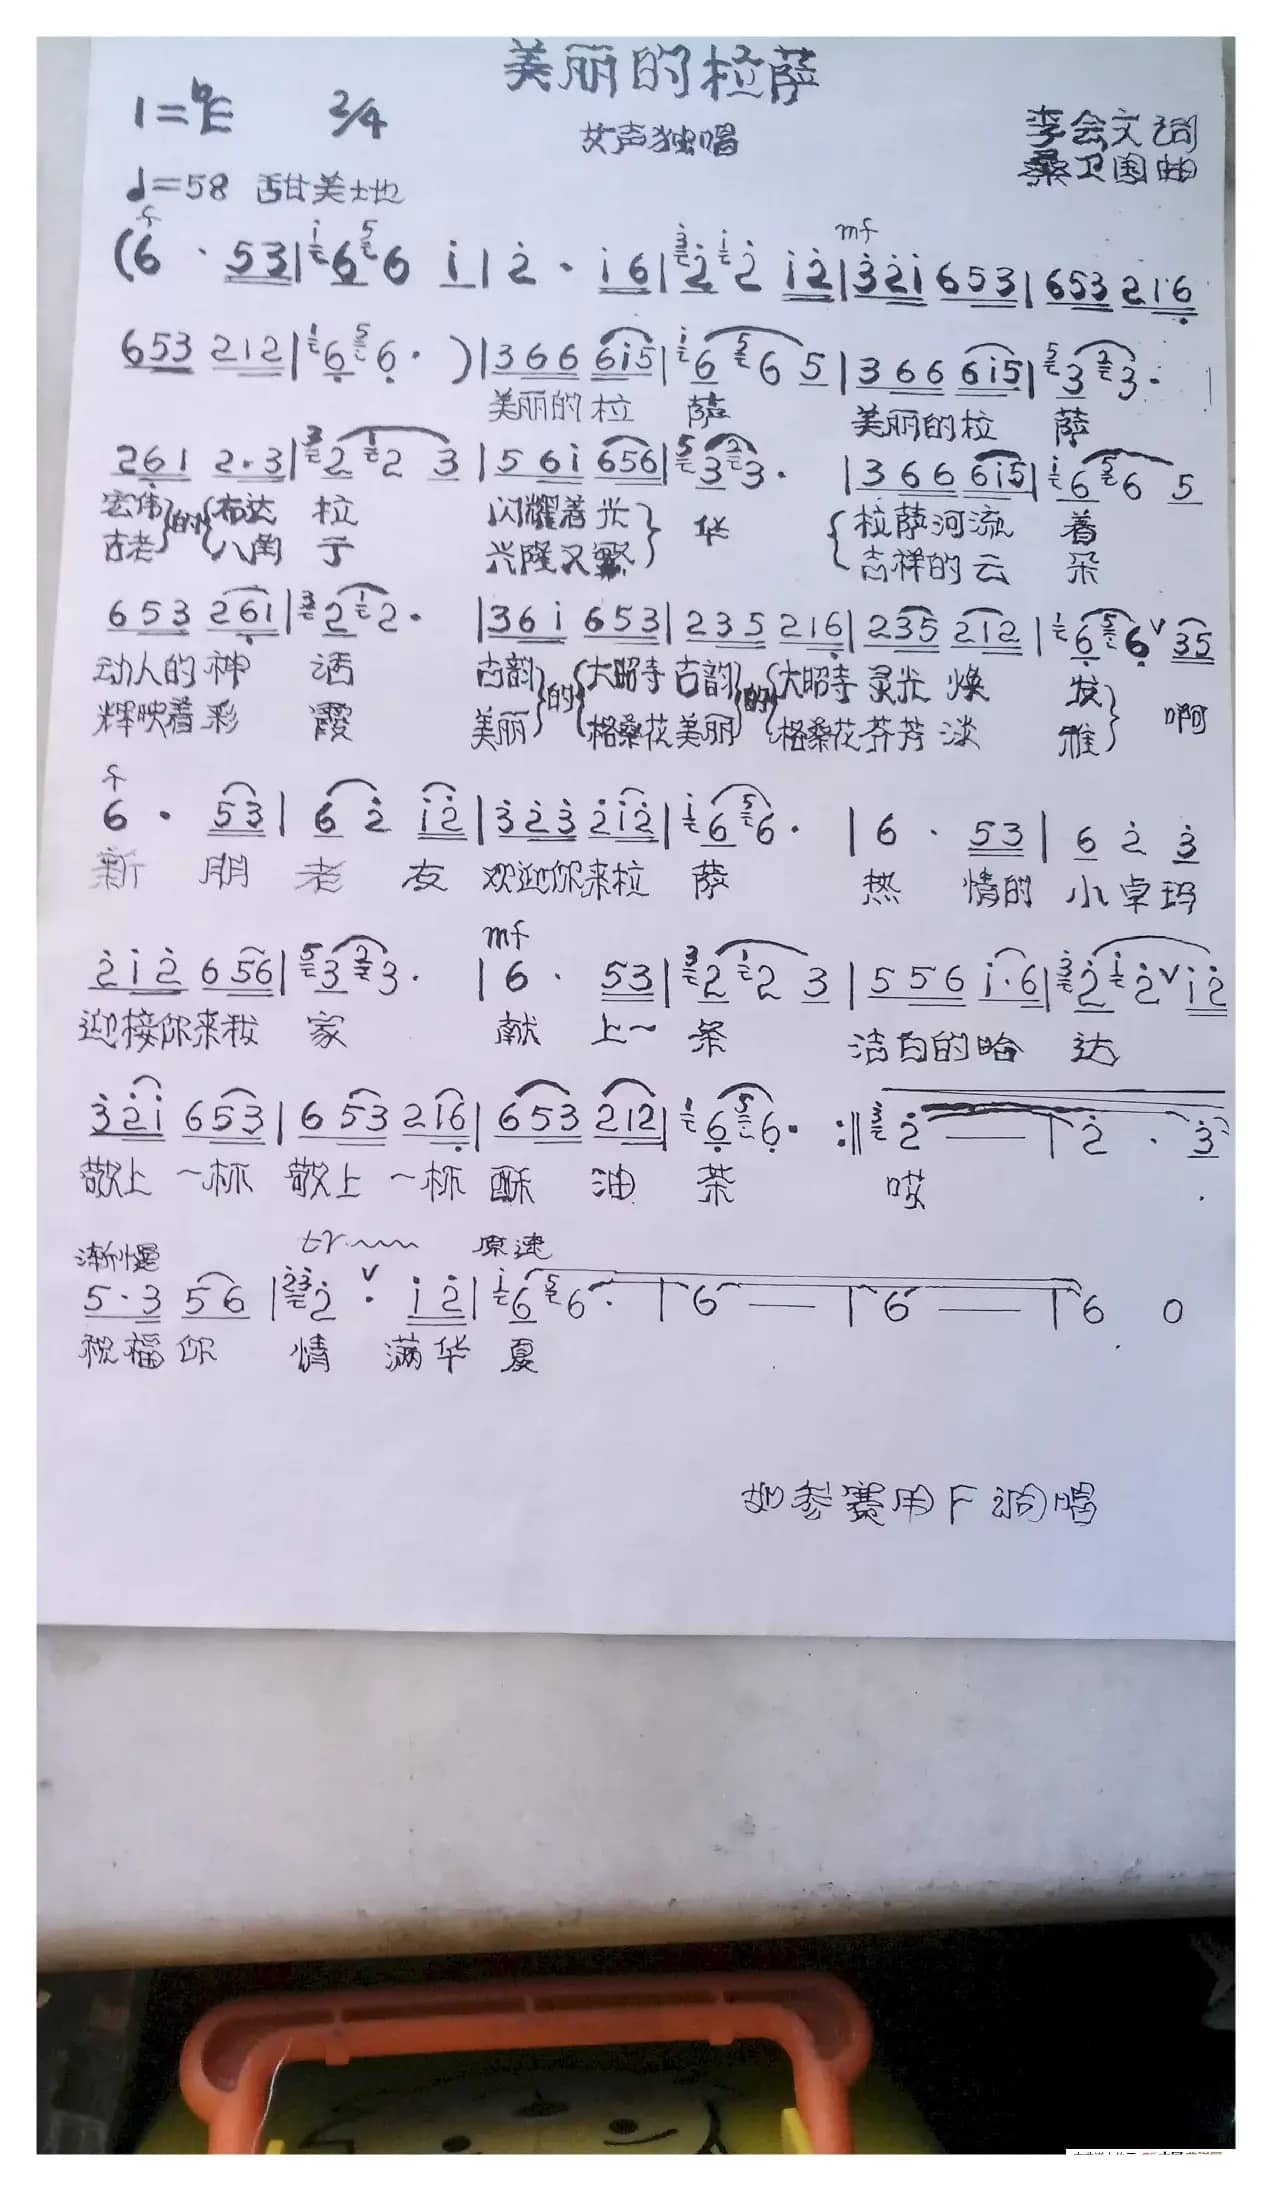 美丽的拉萨
1=♭E 2/4
女声独唱
李会文词
桑卫国曲
♩=58 甜美地
f mf
(6 · 53|6 6 i|2̇ · i6|2̇ 2̇ i2̇|3̇2̇i 653|653 216
653 212|6 6·)|366 6i5|6 6 5|366 6i5|3 3·
美丽的拉 萨 美丽的拉 萨
261 2·3|2 2 3|5 6i 656|3 3·|366 6i5|6 6 5
宏伟 的 布达 拉 闪耀着光 华 拉萨河流 着
古老 八角 亍 兴隆又繁 吉祥的云 朵
653 261|2 2·|36i 653|235 216|235 212|6 6 ∨ 35
动人的神 话 古韵 的 大昭寺 古韵 的 大昭寺 灵光 焕 发
辉映着彩 霞 美丽 格桑花 美丽 格桑花 芬芳 淡 雅 啊
f
6 · 53|6 2̇ i2̇|3̇2̇3̇ 2̇i2̇|6 6·|6 · 53|6 2̇ 3̇
新 朋 老 友 欢迎你来拉 萨 热 情的 小卓玛
mf
2̇i2̇ 656|3 3·|6 · 53|2 2 3|556 i·6|2̇ 2̇ ∨ i2̇
迎接你来我 家 献 上一 条 洁白的哈 达
3̇2̇i 653|653 216|653 212|6 6· :‖ 2̇ —|2̇ · 3̇
敬上 一杯 敬上 一杯 酥 油 茶 哎
渐慢 tr 原速
5·3 56|2̇ ∨ · i2̇|6 6·|6 —|6 —|6 0
祝福你 情 满华 夏
如参赛用F调唱